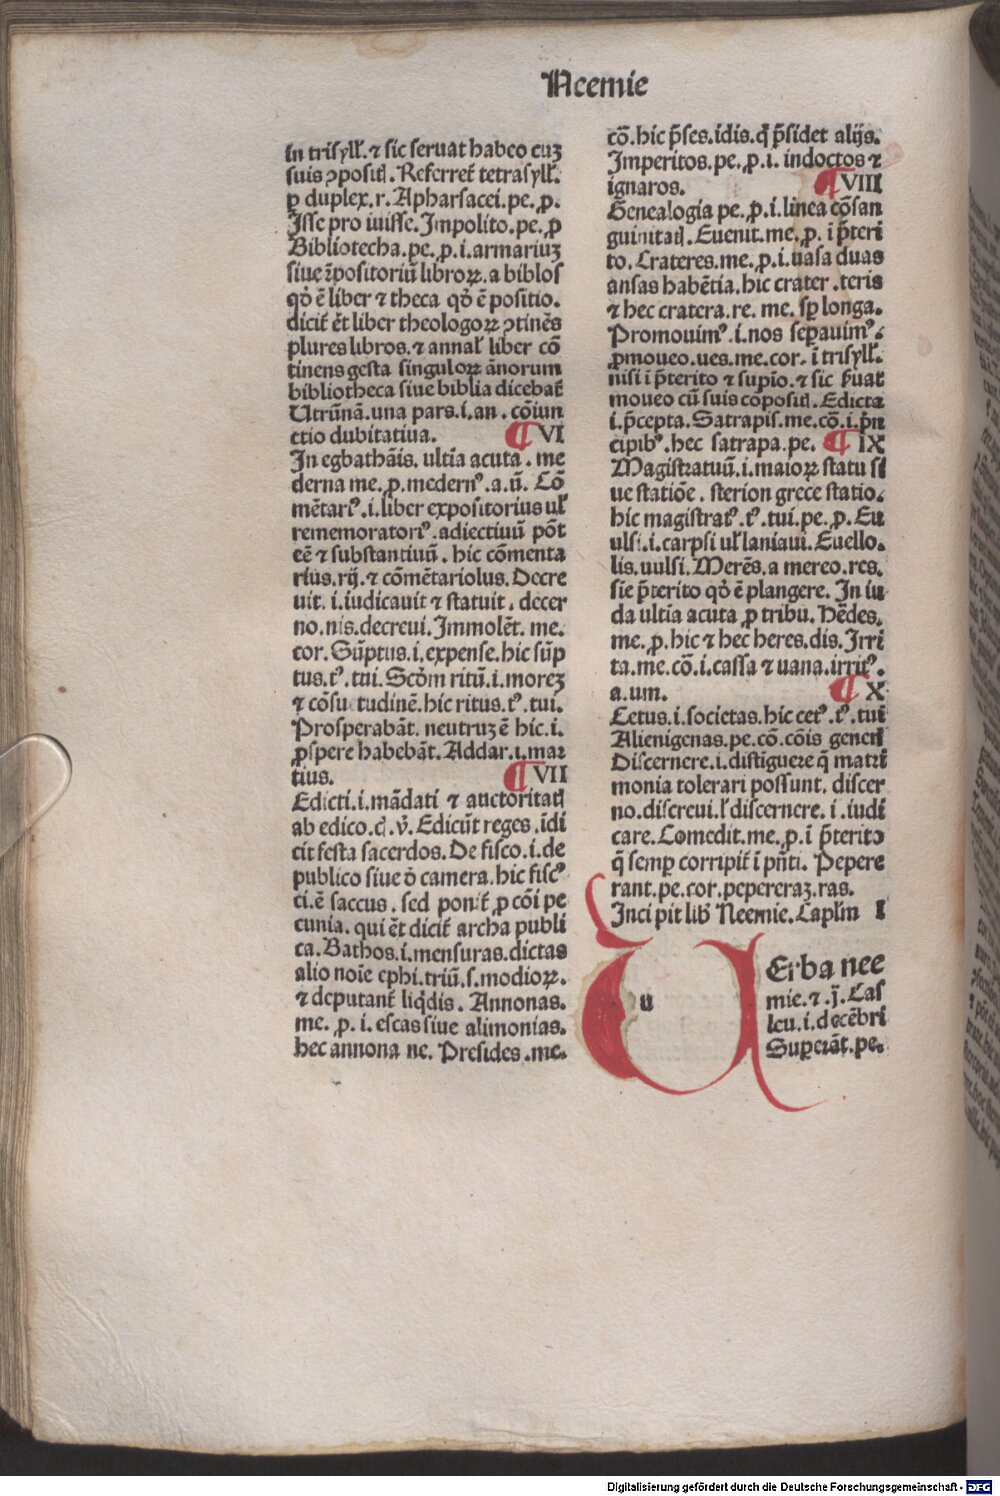 Neemie
in trisyll̄. ⁊ sic seruat habeo cuʒ
suis ↄpositꝭ. Referret̄ tetrasyll̄.
ꝑ duplex.r. Apharsacei.pe.ꝓ.
Jsse pro iuisse. Jmpolito.pe.ꝓ
Bibliotecha.pe.ꝓ.i.armariuʒ
siue r̄positoriū libroꝝ.a biblos
qō ē liber ⁊ theca qō ē positio.
dicit̄ ēt liber theologoꝝ ↄtinēs
plures libros.⁊ annal̄ liber cō
tinens gesta singuloꝝ ānorum
bibliotheca siue biblia dicebat̄
Utrūnā.una pars.i.an.cōiun
ctio dubitatiua. ¶ VI
In egbathāis. ultīa acuta. me
derna me.ꝓ.modernꝰ.a.ū. Cō
mētarꝰ.i.liber expositorius ul̄
rememoratorꝰ.adiectiuū pōt
eē ⁊ substantiuū. hic cōmenta
rius.rij.⁊ cōmētariolus. Decre
uit.i.iudicauit ⁊ statuit. decer
no.nis.decreui. Jmmolēt. me.
cor. Sūptus.i.expense.hic sūp
tus.tꝰ.tui. Scōm ritū.i.moreʒ
⁊ cōsu tudinē.hic ritus.tꝰ.tui.
Prosperabāt. neutruʒ ē hic.i.
ꝓspere habebāt. Addar.i.mar
tius. ¶ VII
Edicti.i.mādati ⁊ auctoritatꝭ
ab edico.cꝭ.v̄. Edicūt reges.īdi
cit festa sacerdos. De fisco.i.de
publico siue ō camera.hic fiscꝰ
ci.ē saccus. sed ponit̄ ꝓ cōi pe
cunia. qui ēt dicit̄ archa publi
ca. Bathos.i.mensuras.dictas
alio noīe ephi.triū.s.modioꝝ.
⁊ deputant̄ liq̇dis. Annonas.
me. ꝓ. i. escas siue alimonias.
hec annona ne. Presides.me.
cō.hic p̄ses.idis.q̇ p̄sidet alijs.
Jmperitos.pe.ꝓ.i. indoctos ⁊
ignaros. ¶ VIII
Genealogia pe.ꝓ.i.linea cōsan
guinitatꝭ. Euenit.me.ꝓ. i p̄teri
to. Crateres.me.ꝓ.i.uasa duas
ansas habētia.hic crater.teris
⁊ hec cratera.re. me. sꝑ longa.
Promouimꝰ.i.nos seꝑauimꝰ.
ꝓmoueo.ues.me.cor.ī trisyll̄.
nisi ī p̄terito ⁊ supīo.⁊ sic ẜuat
moueo cū suis cōpositꝭ. Edicta
i.p̄cepta. Satrapis.me.cō.i.pn̄
cipibꝰ.hec satrapa.pe. ¶ IX
Magistratuū.i.maioꝝ statu si
ue statiōe. sterion grece statio.
hic magistratꝰ.tꝰ.tui.pe.ꝓ. Eu
ulsi.i.carpsi ul̄ laniaui. Euello.
lis.uulsi. Merēs.a mereo.res.
sie p̄terito qō ē plangere. In iu
da ultīa acuta ꝓ tribu. Hēdes.
me.ꝓ.hic ⁊ hec heres.dis. Jrri
ta.me.cō.i.cassa ⁊ uana.irritꝰ.
a.um. ¶ X
Cetus.i.societas.hic cetꝰ.tꝰ.tui
Alienigenas.pe.cō.cōis generꝭ
Discernere.i.distīguere q̄ matri
monia tolerari possunt. discer
no.discreui.l̄ discernere. i .iudi
care. Comedit.me.ꝓ.i p̄terito
q̄ semꝑ corripit̄ ī pn̄ti. Pepere
rant.pe.cor.pepereraʒ.ras.
Inci pit lib̄ Neemie. Capl̄m I
u
Erba nee
mie.⁊.j̄. Cas
leu.i.decēbri
Suꝑerāt.pe.
Digitalisierung gefördert durch die Deutsche Forschungsgemeinschaft - DFG